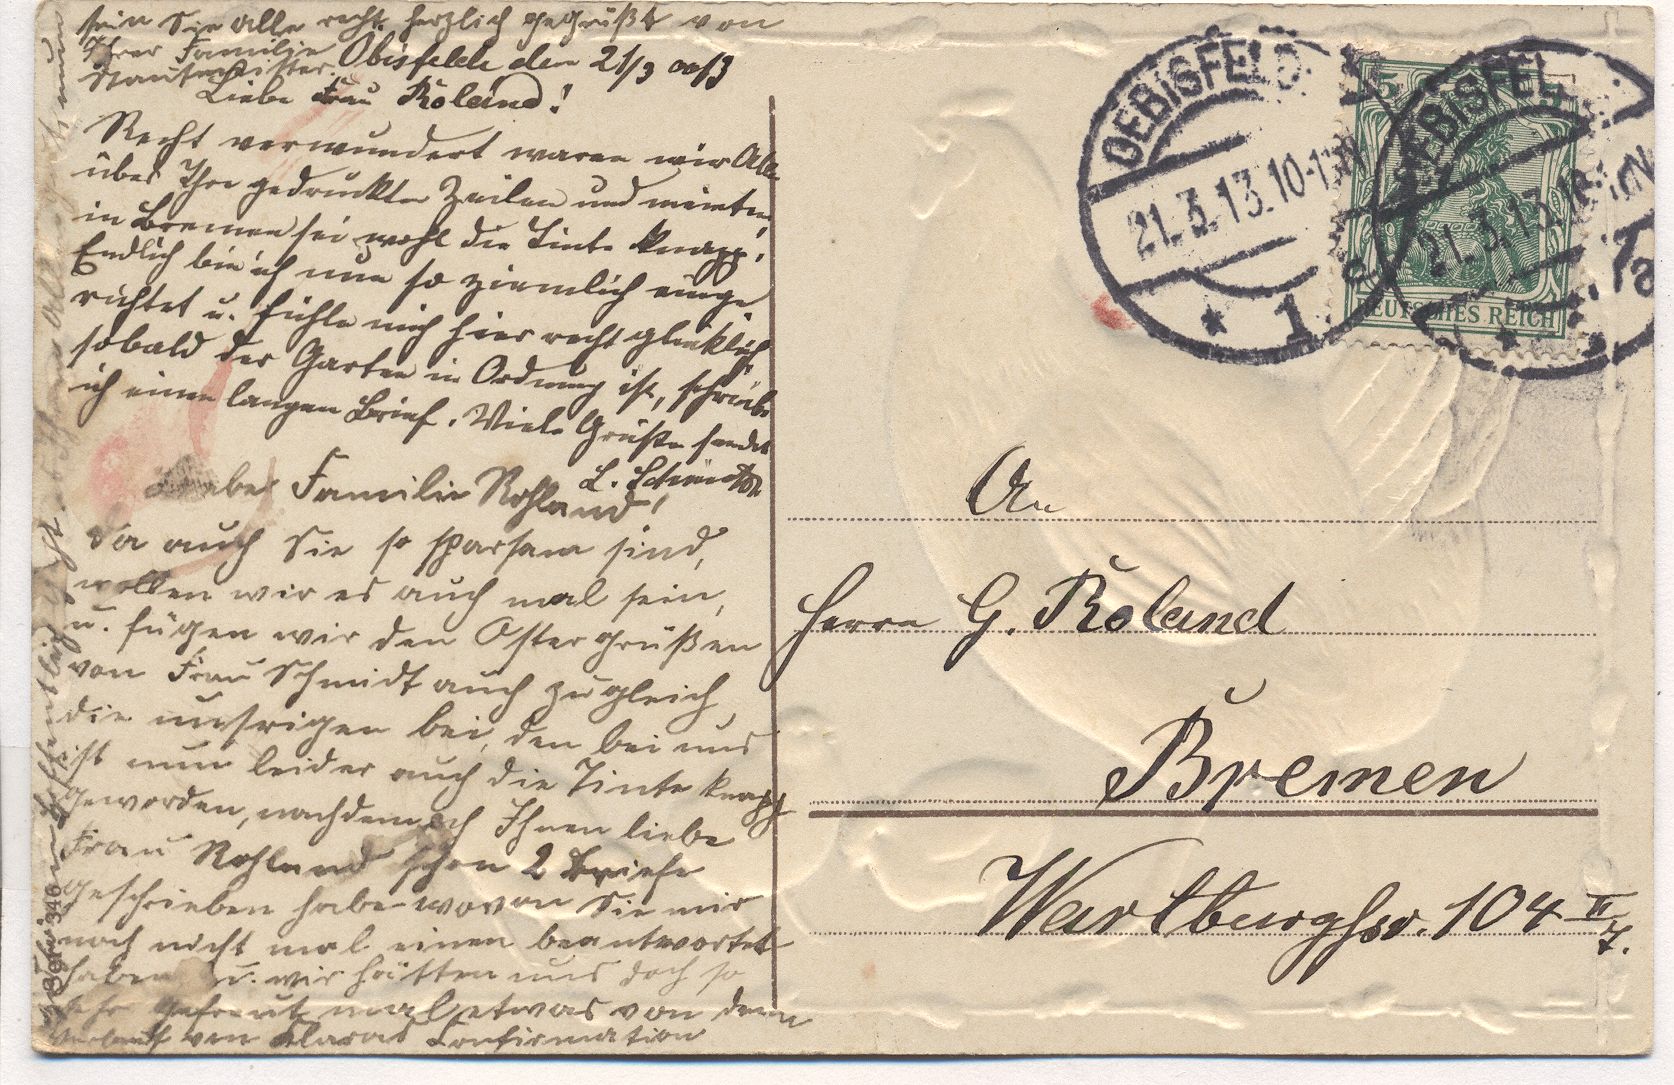 sein Sie alle recht herzlich gegrüßt von
Ihrer Familie
Obisfelde den 21/3 00/3
Liebe Frau Roland!
Recht verwundert waren wir Alle
über Ihre gedruckten Zeilen und meinten,
in Bremen sei wohl die Tinte knapp.
Endlich bin ich nun so ziemlich einge
richtet u. fühle mich hier recht glücklich,
sobald der Garten in Ordnung ist, schreibe
ich einen langen Brief. Viele Grüße sendet
L. Schmidt
Liebe Familie Rohland!
Da auch Sie so sparsam sind,
wollen wir es auch mal sein,
u. fügen wir den Ostergrüßen
von Frau Schmidt auch zugleich
die unsrigen bei, den bei uns
ist nun leider auch die Tinte knapp
geworden, nachdem ich Ihnen liebe
Frau Rohland schon 2 Briefe
geschrieben habe wovon Sie mir
noch nicht mal einen beantwortet
haben u. wir hätten uns doch so
sehr gefreut mal etwas von dem
von Klaras Confirmation
hoffentlich
346
OEBISFELD
21.3.13.10-11N
* 1 a
OEBISFEL
21.3.13.10-11N
* 1a
5
DEUTSCHES REICH
An
Herrn G. Roland
Bremen
Wartburgstr. 104 II
7.